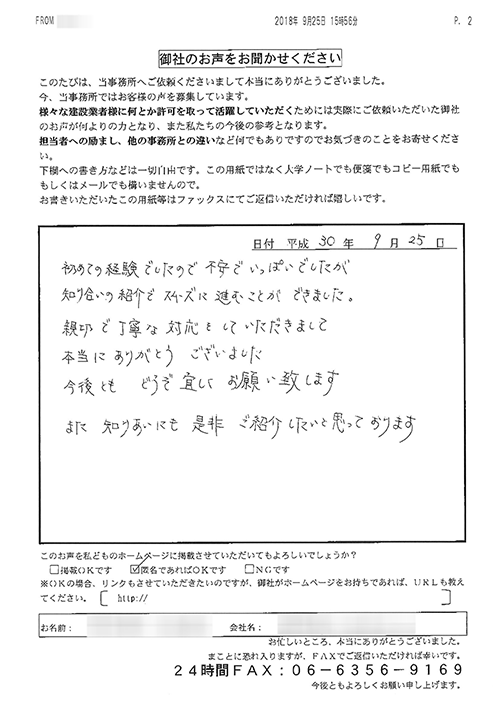 FROM
2018年 9月25日 15時56分
P. 2
御社のお声をお聞かせください
このたびは、当事務所へご依頼くださいまして本当にありがとうございました。
今、当事務所ではお客様の声を募集しています。
様々な建設業者様に何とか許可を取って活躍していただくためには実際にご依頼いただいた御社
のお声が何よりの力となり、また私たちの今後の参考となります。
担当者への励まし、他の事務所との違いなど何でもありですのでお気づきのことをお寄せくださ
い。
下欄への書き方などは一切自由です。この用紙ではなく大学ノートでも便箋でもコピー用紙でも
もしくはメールでも構いませんので。
お書きいただいたこの用紙等はファックスにてご返信いただければ嬉しいです。
日付 平成 30 年 9 月 25 日
初めての経験でしたので 不安で いっぱいでしたが
知り合いの紹介で スムーズに 進むことが できました。
親切で丁寧な 対応をして いただきまして
本当に ありがとう ございました
今後とも どうぞ 宜しく お願い致します
また 知りあいにも 是非 ご紹介したいと思っております
このお声を私どものホームページに掲載させていただいてもよろしいでしょうか?
□掲載OKです ☑匿名であればOKです □NGです
※OKの場合、リンクもさせていただきたいのですが、御社がホームページをお持ちであれば、URLも教え
てください。[ http:// ]
お名前: 会社名:
お忙しいところ、本当にありがとうございました。
まことに恐れ入りますが、FAXでご返信いただければ幸いです。
24時間FAX:06-6356-9169
今後ともよろしくお願い申し上げます。